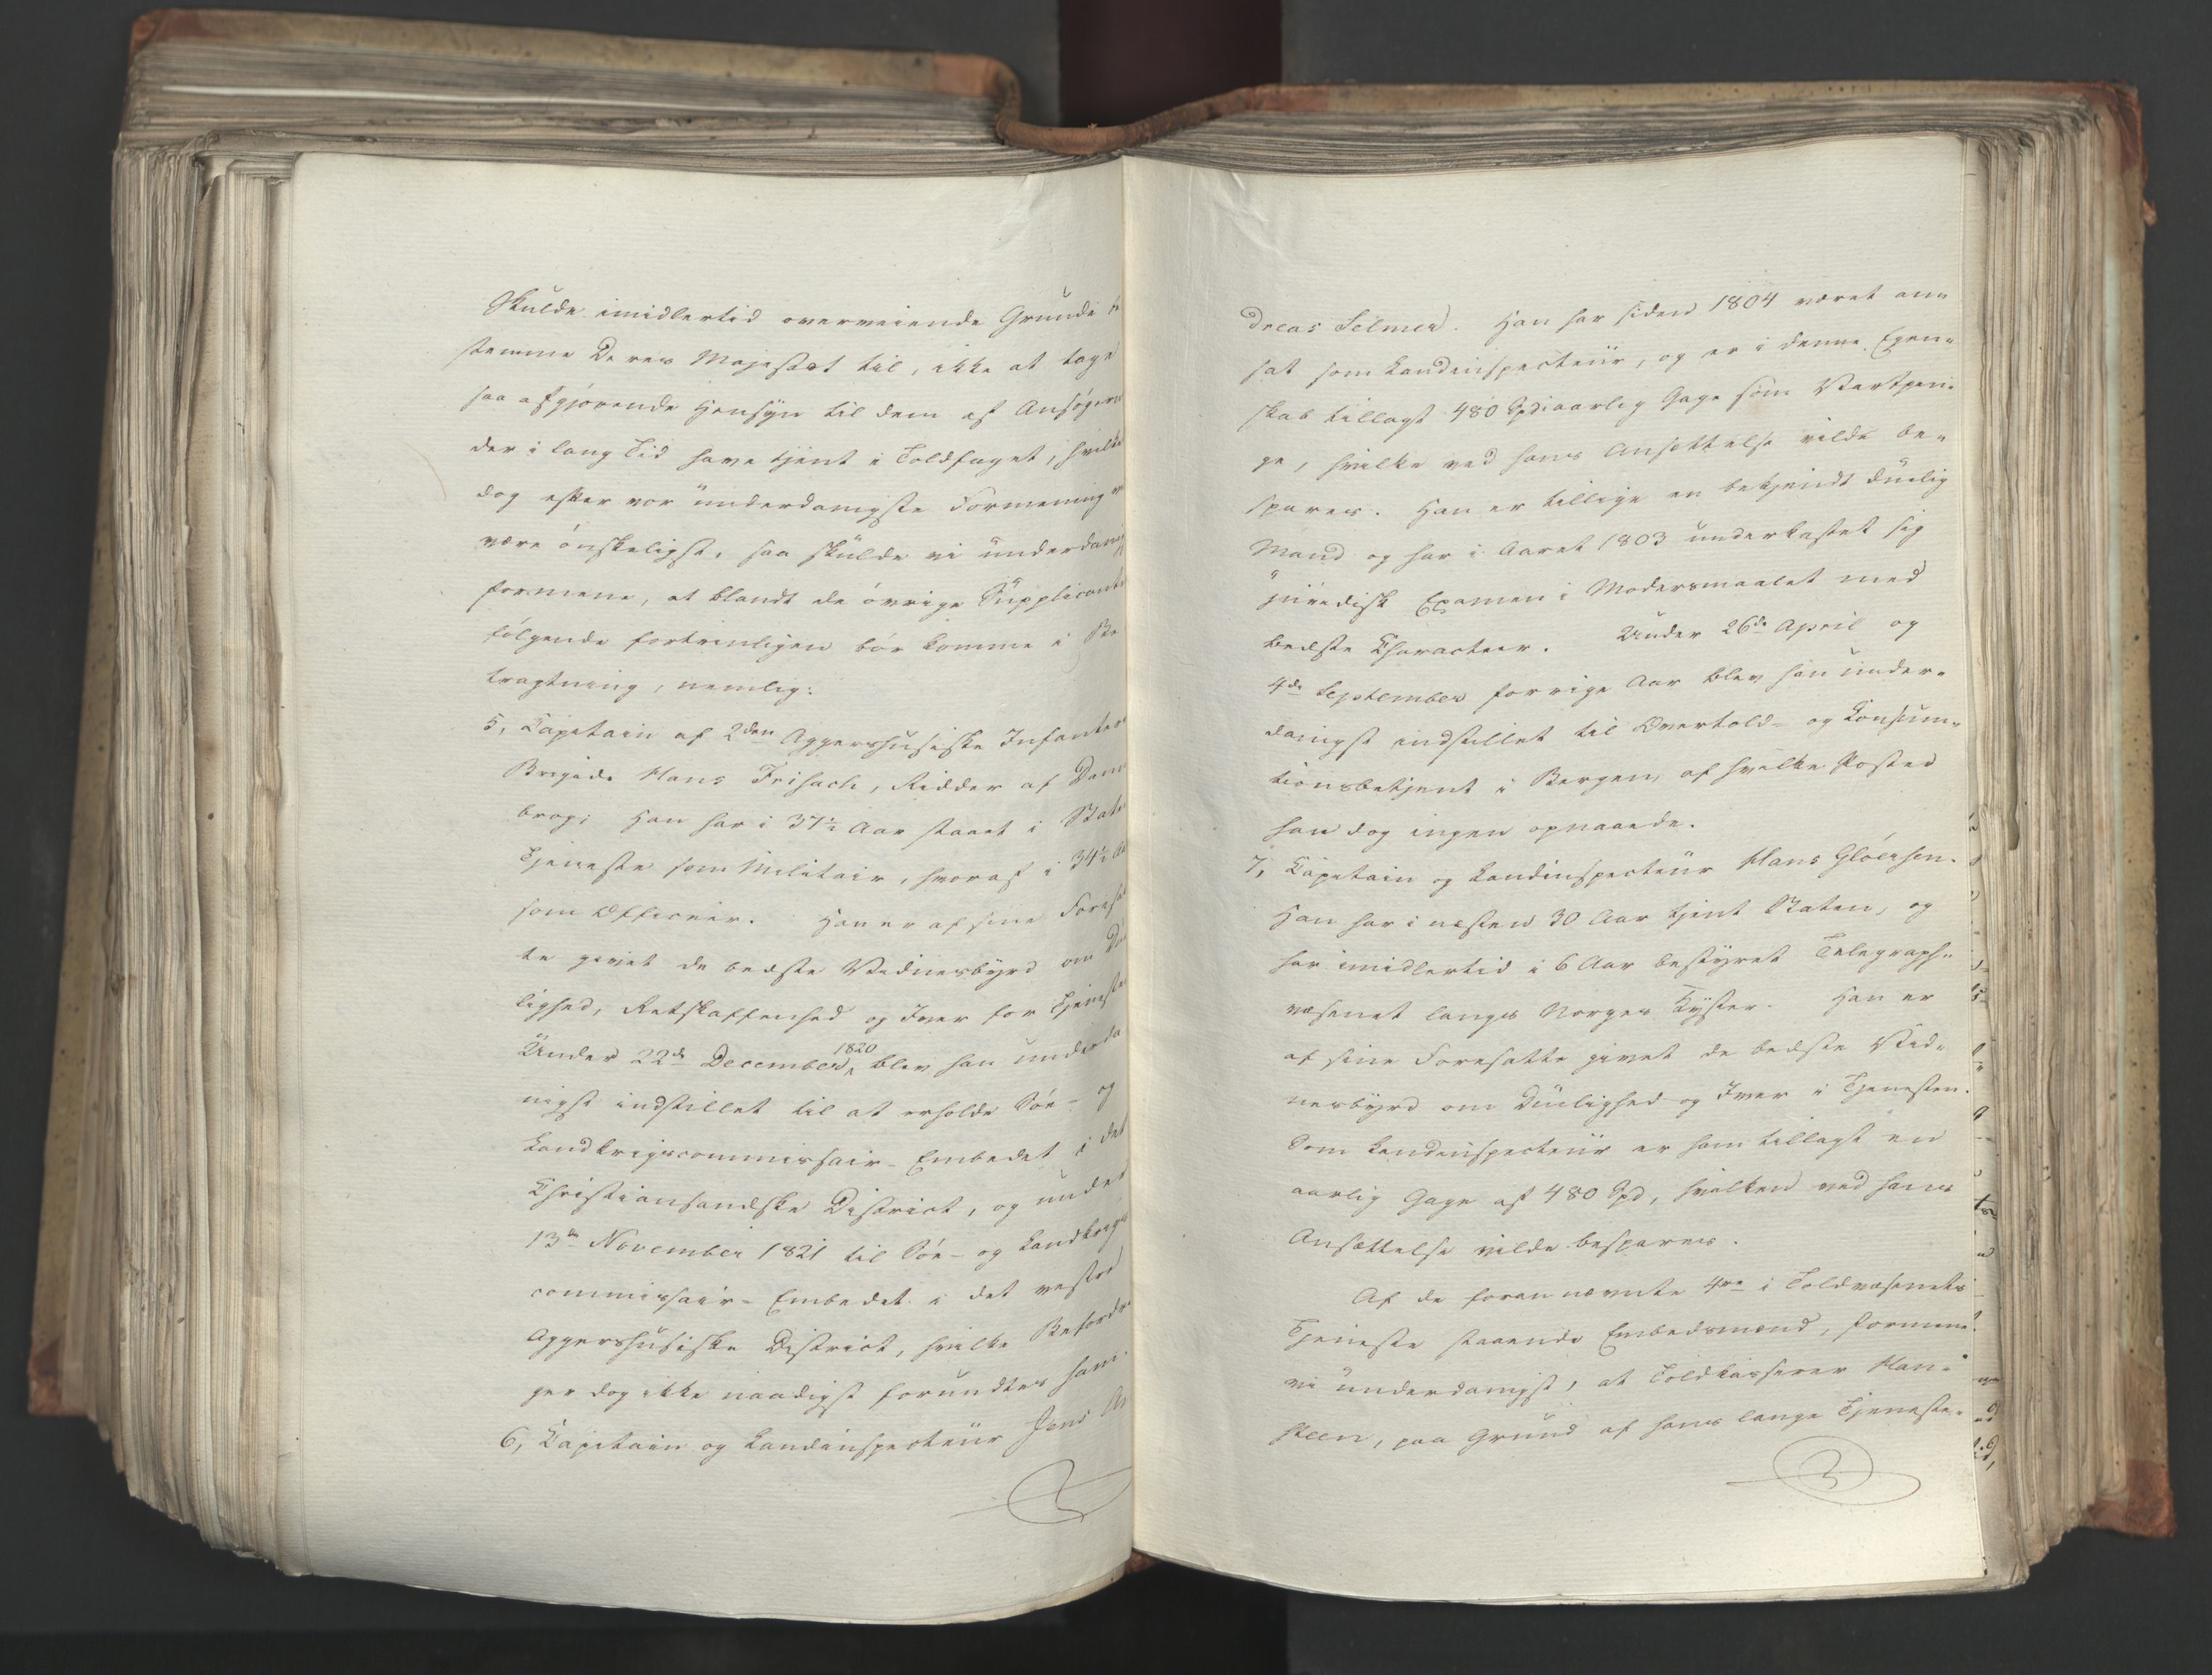 Skulde imidlertid overveiende Grunde be
stemme Deres Majestæt til, ikke at tage
saa afgjørende Hensyn til dem af Ansøgerne
der i lang Tid have tjent i Toldfaget, hvilket
dog efter vor underdanigste Formening vil
være ønskeligst, saa skulde vi underdanigst
formene, at blandt de øvrige Supplicanter
følgende fortrinligen bør komme i Be
tragtning, nemlig:
5, Capitain af 2den Aggershusiske Infanterie
Brigade Hans Frisach, Ridder af Danne
brog; Han har i 37½ Aar staaet i Statens
Tjeneste som Militair, hvoraf i 34½ Aar
som Officeer. Han er af sine Foresat
te givet de bedste Vidnesbyrd om Due
lighed, Retskaffenhed og Iver for Tjenesten
Under 22de December 1820 blev han underda
nigst indstillet til at erholde Søe- og
Landkrigscommissair-Embedet i det
Christiansandske District, og under
13de November 1821 til Søe- og Landkrigs
commissair-Embedet i det vestre
Aggershusiske District, hvilke Befordrin
ger dog ikke naadigst forundtes ham.
6, Capitain og Landinspecteur Jens An
dreas Selmer. Han har siden 1804 været an-
sat som Landinspecteur, og er i denne Egen-
skab tillagt 480 Spd aarlig Gage som Vartpen-
ge, hvilke ved hans Ansættelse vilde be-
spares. Han er tillige en bekjendt duelig
Mand og har i Aaret 1803 underkastet sig
juridisk Examen i Modersmaalet med
bedste Characteer. Under 26de April og
4de September forrige Aar blev han under-
danigst indstillet til Overtold- og Consum-
tionsbetjent i Bergen, af hvilke Poster
han dog ingen opnaaede.
7, Capitain og Landinspecteur Hans Glöersen.
Han har i næsten 30 Aar tjent Staten, og
har imidlertid i 6 Aar bestyret Telegraph-
væsenet langs Norges Kyster. Han er
af sine Foresatte givet de bedste Vid-
nesbyrd om Duelighed og Iver i Tjenesten.
Som Landinspecteur er ham tillagt en
aarlig Gage af 480 Spd, hvilken ved hans
Ansættelse vilde bespares.
Af de foran nævnte 4re i Toldvæsenets
Tjeneste staaende Embedsmænd, formene
vi underdanigst, at Toldkasserer Han-
steen, paa Grund af hans lange Tjeneste-